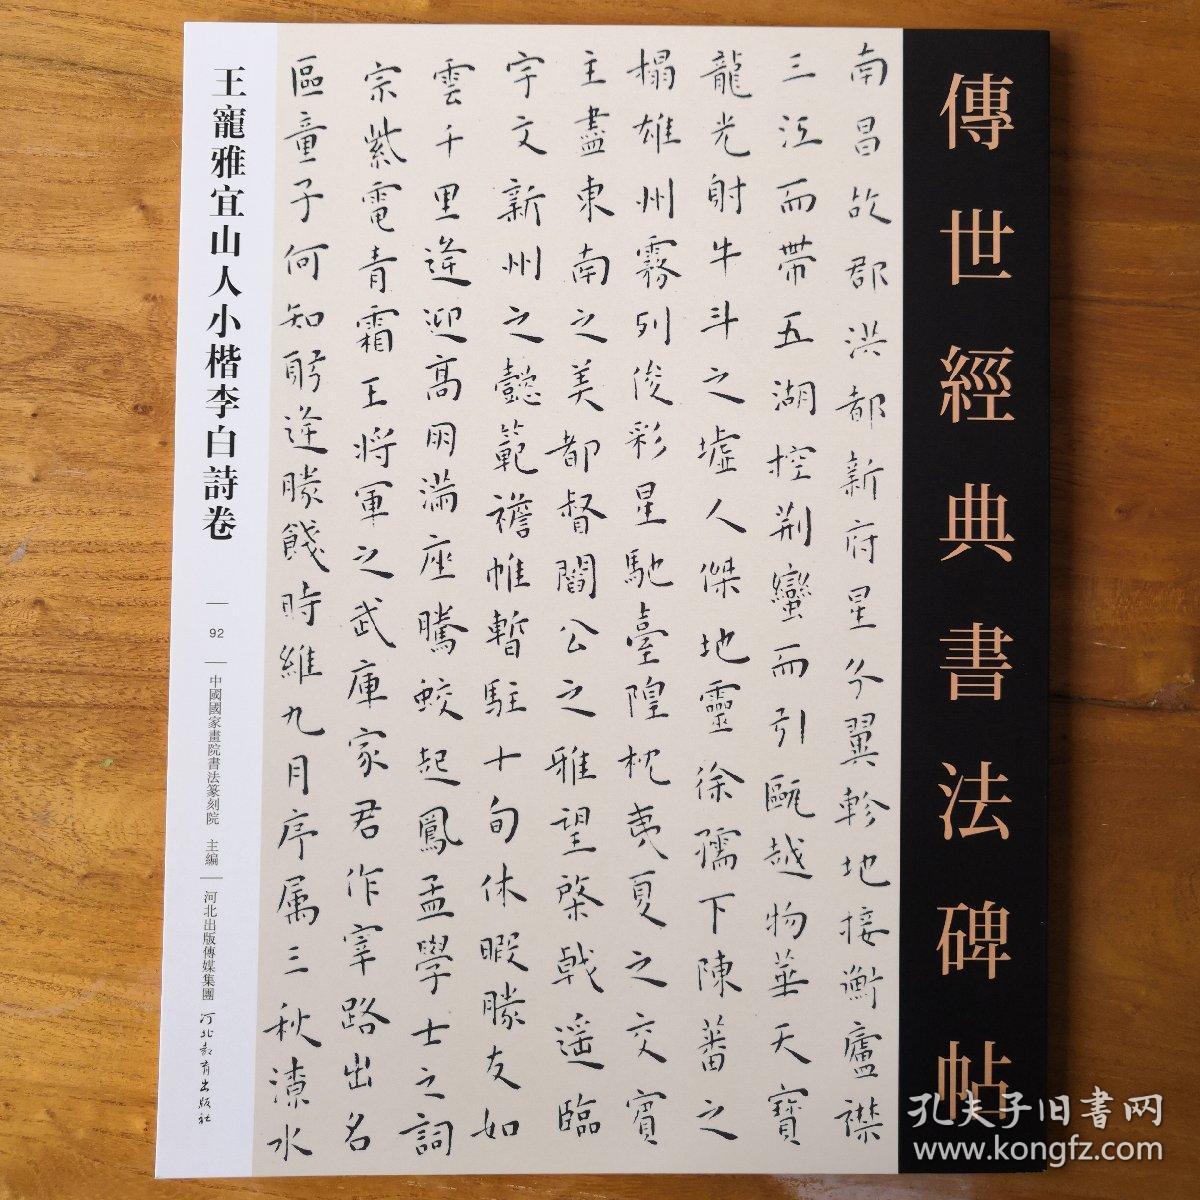 傳世經典書法碑帖
南昌故郡洪都新府星分翼軫地接衡廬襟
三江而帶五湖控荊蠻而引甌越物華天寶
龍光射牛斗之墟人傑地靈徐孺下陳蕃之
榻雄州霧列俊彩星馳臺隍枕夷夏之交賓
主盡東南之美都督閻公之雅望棨戟遥臨
宇文新州之懿範襜帷暫駐十旬休暇勝友如
雲千里逢迎高朋滿座騰蛟起鳳孟學士之詞
宗紫電青霜王將軍之武庫家君作宰路出名
區童子何知躬逢勝餞時維九月序属三秋潦水
王寵雅宜山人小楷李白詩卷
92
中國國家畫院書法篆刻院 主編
河北出版傳媒集團 河北教育出版社
孔夫子旧書网
www.kongfz.com